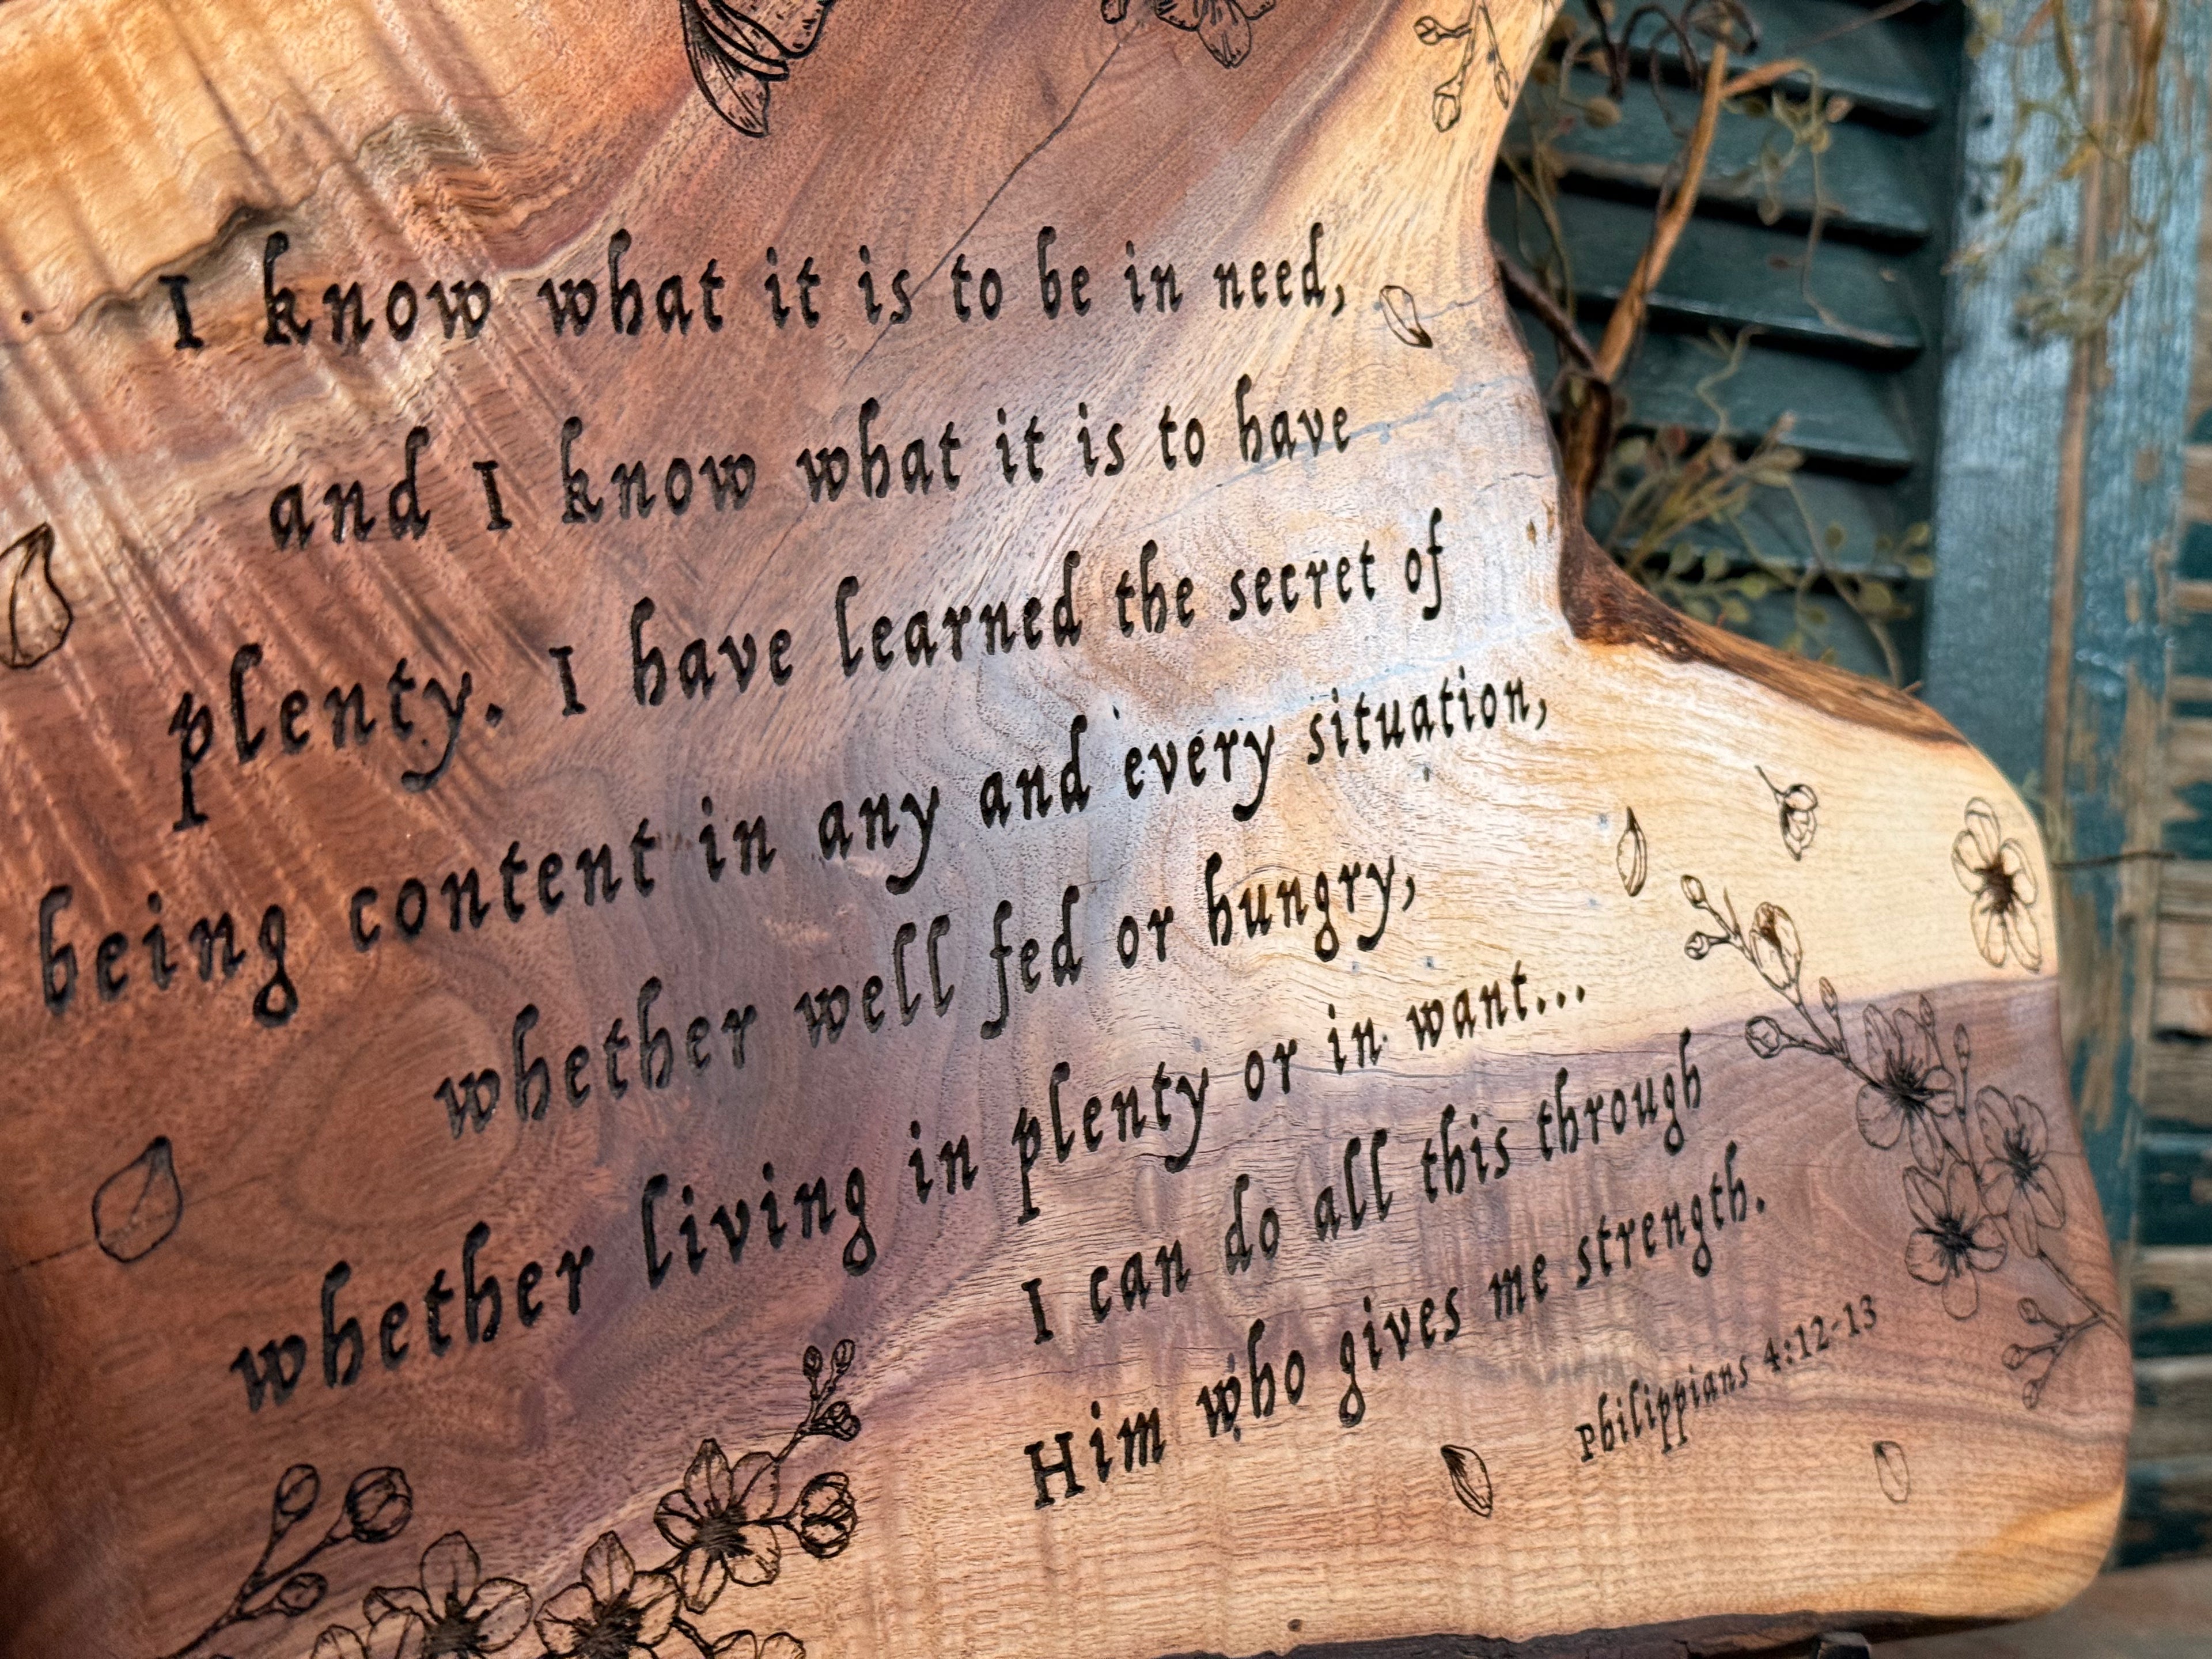 I know what it is to be in need,
and I know what it is to have
plenty. I have learned the secret of
being content in any and every situation,
whether well fed or hungry,
whether living in plenty or in want...
I can do all this through
Him who gives me strength.
Philippians 4:12-13